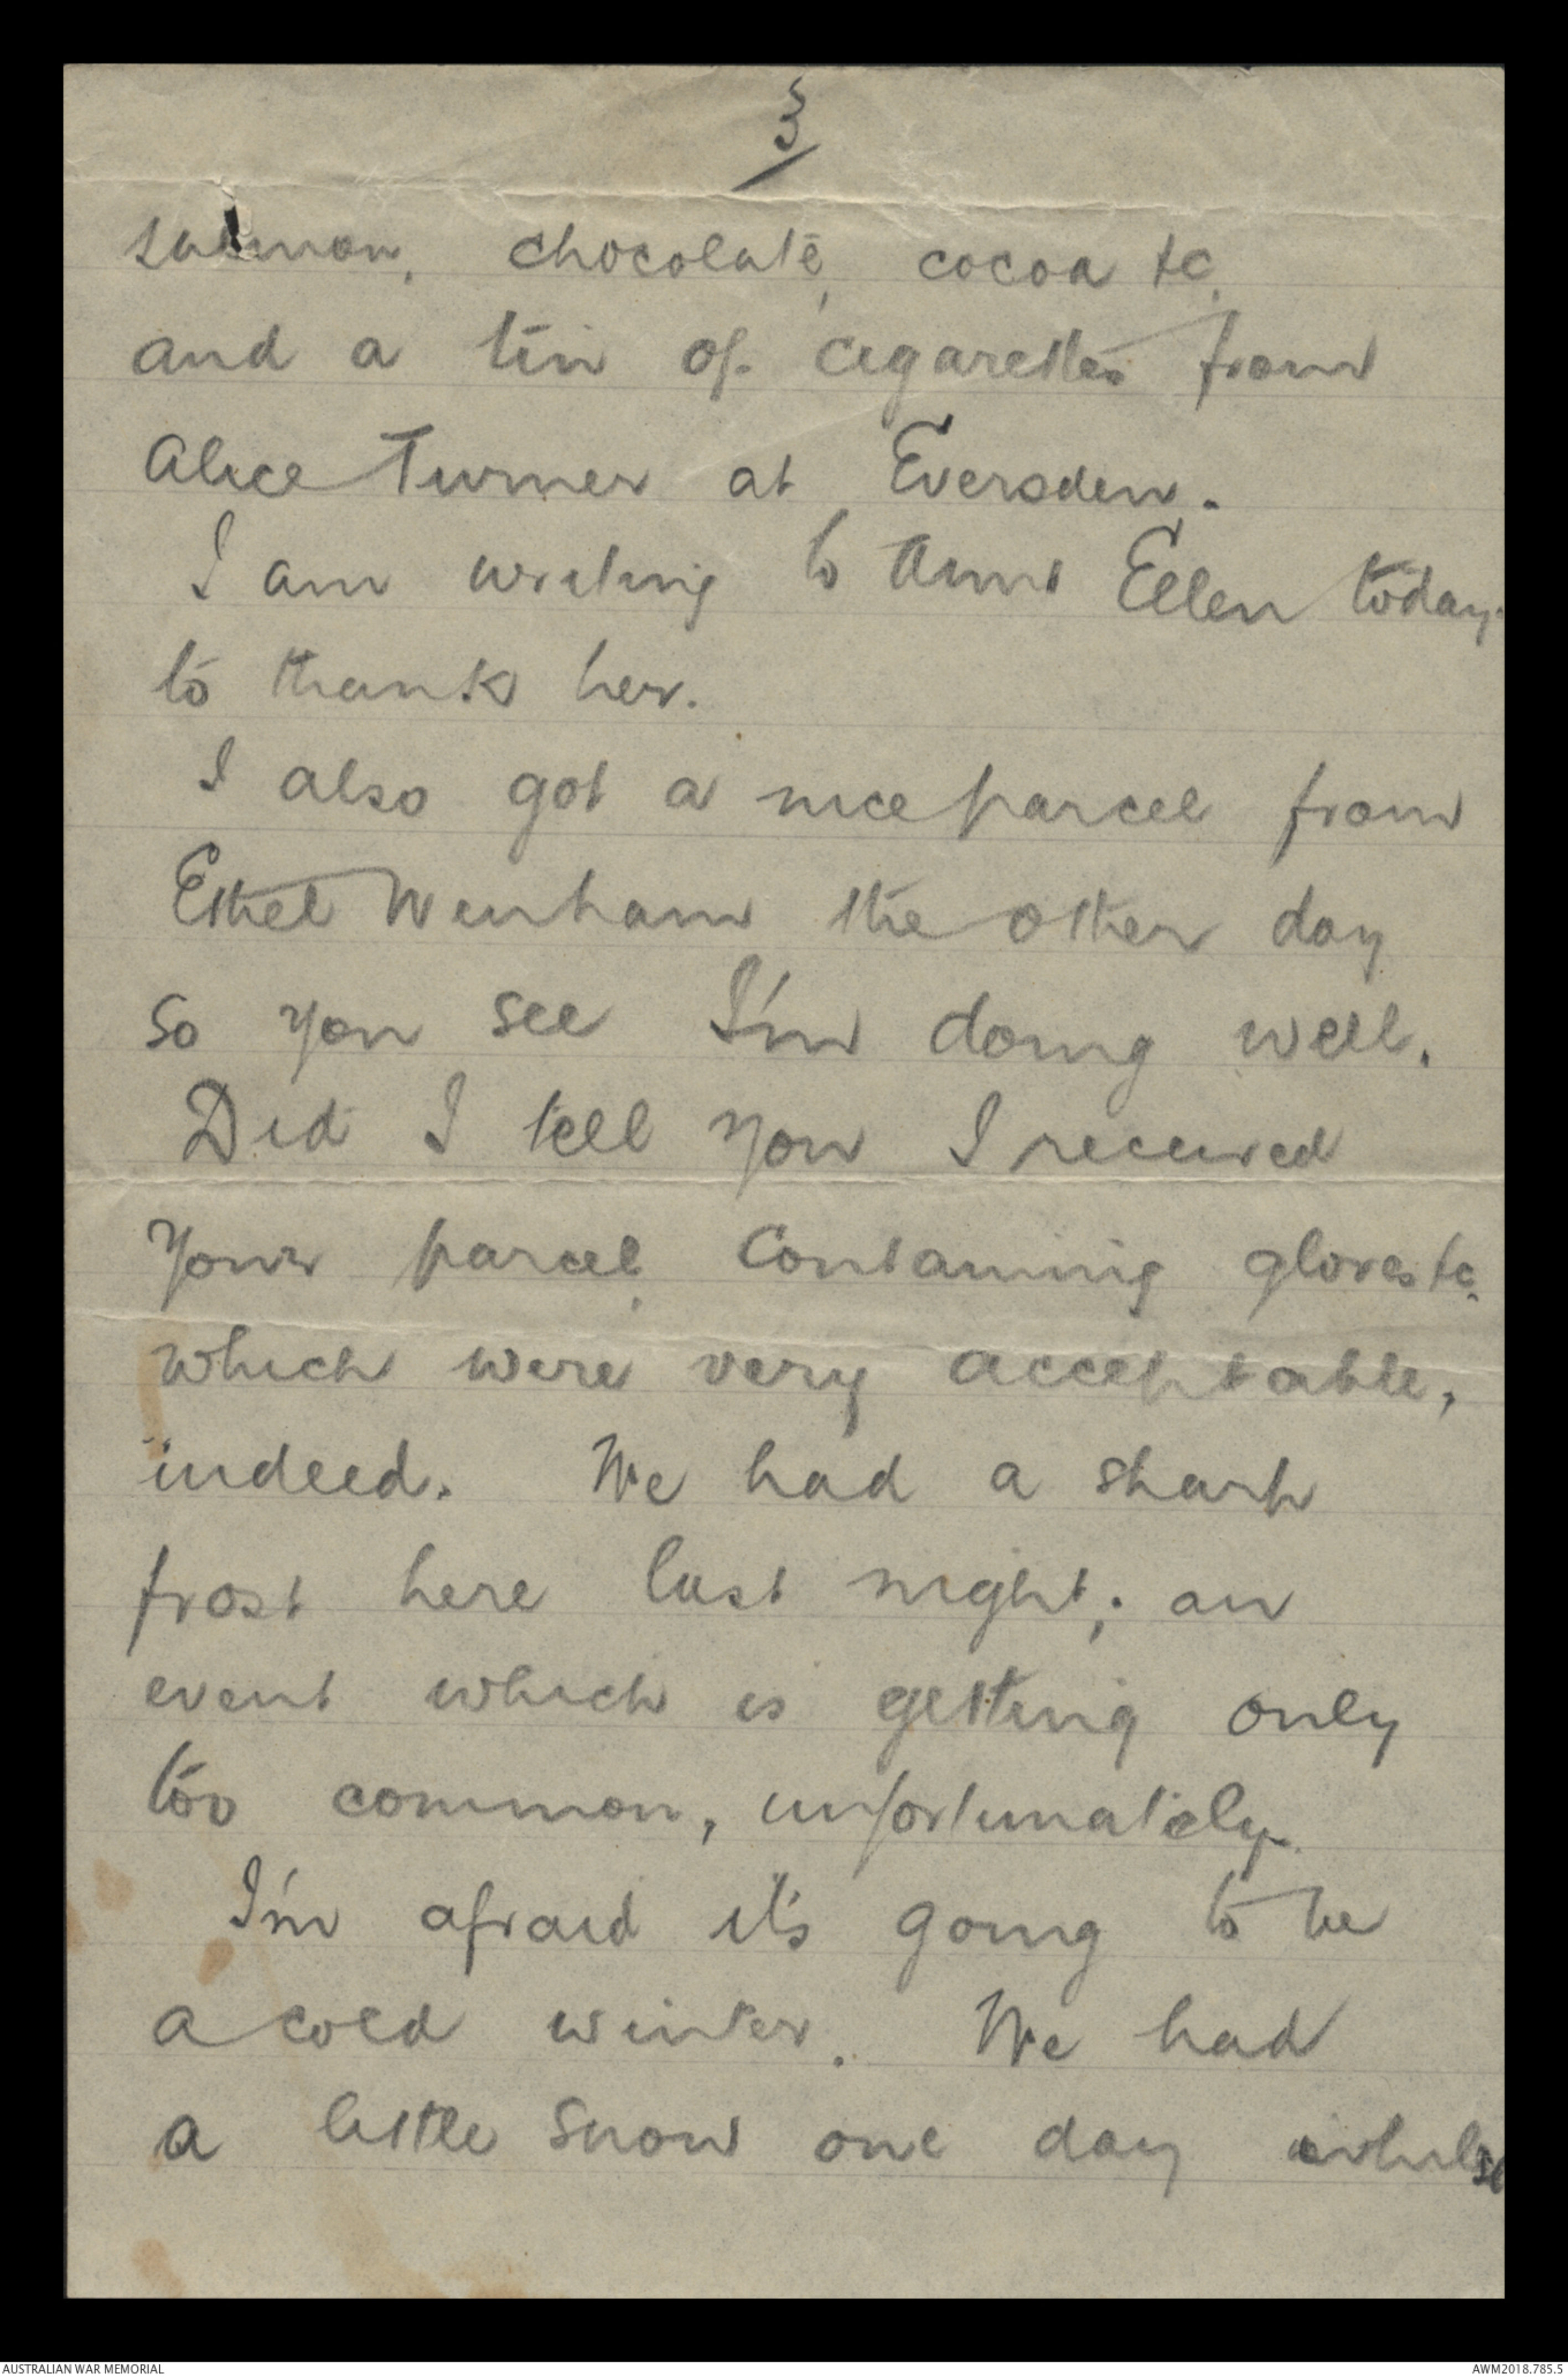 3
salmon, chocolate, cocoa &c,
and a tin of cigarettes from
Alice Turner at Eversden.
I am writing to Aunt Ellen today
to thank her.
I also got a nice parcel from
Ethel Wenham the other day
so you see I'm doing well.
Did I tell you I received
your parcel, containing gloves &c,
which were very acceptable,
indeed. We had a sharp
frost here last night; an
event which is getting only
too common, unfortunately.
I'm afraid it's going to be
a cold winter. We had
a little snow one day whilst
AUSTRALIAN WAR MEMORIAL
AWM2018.785.5